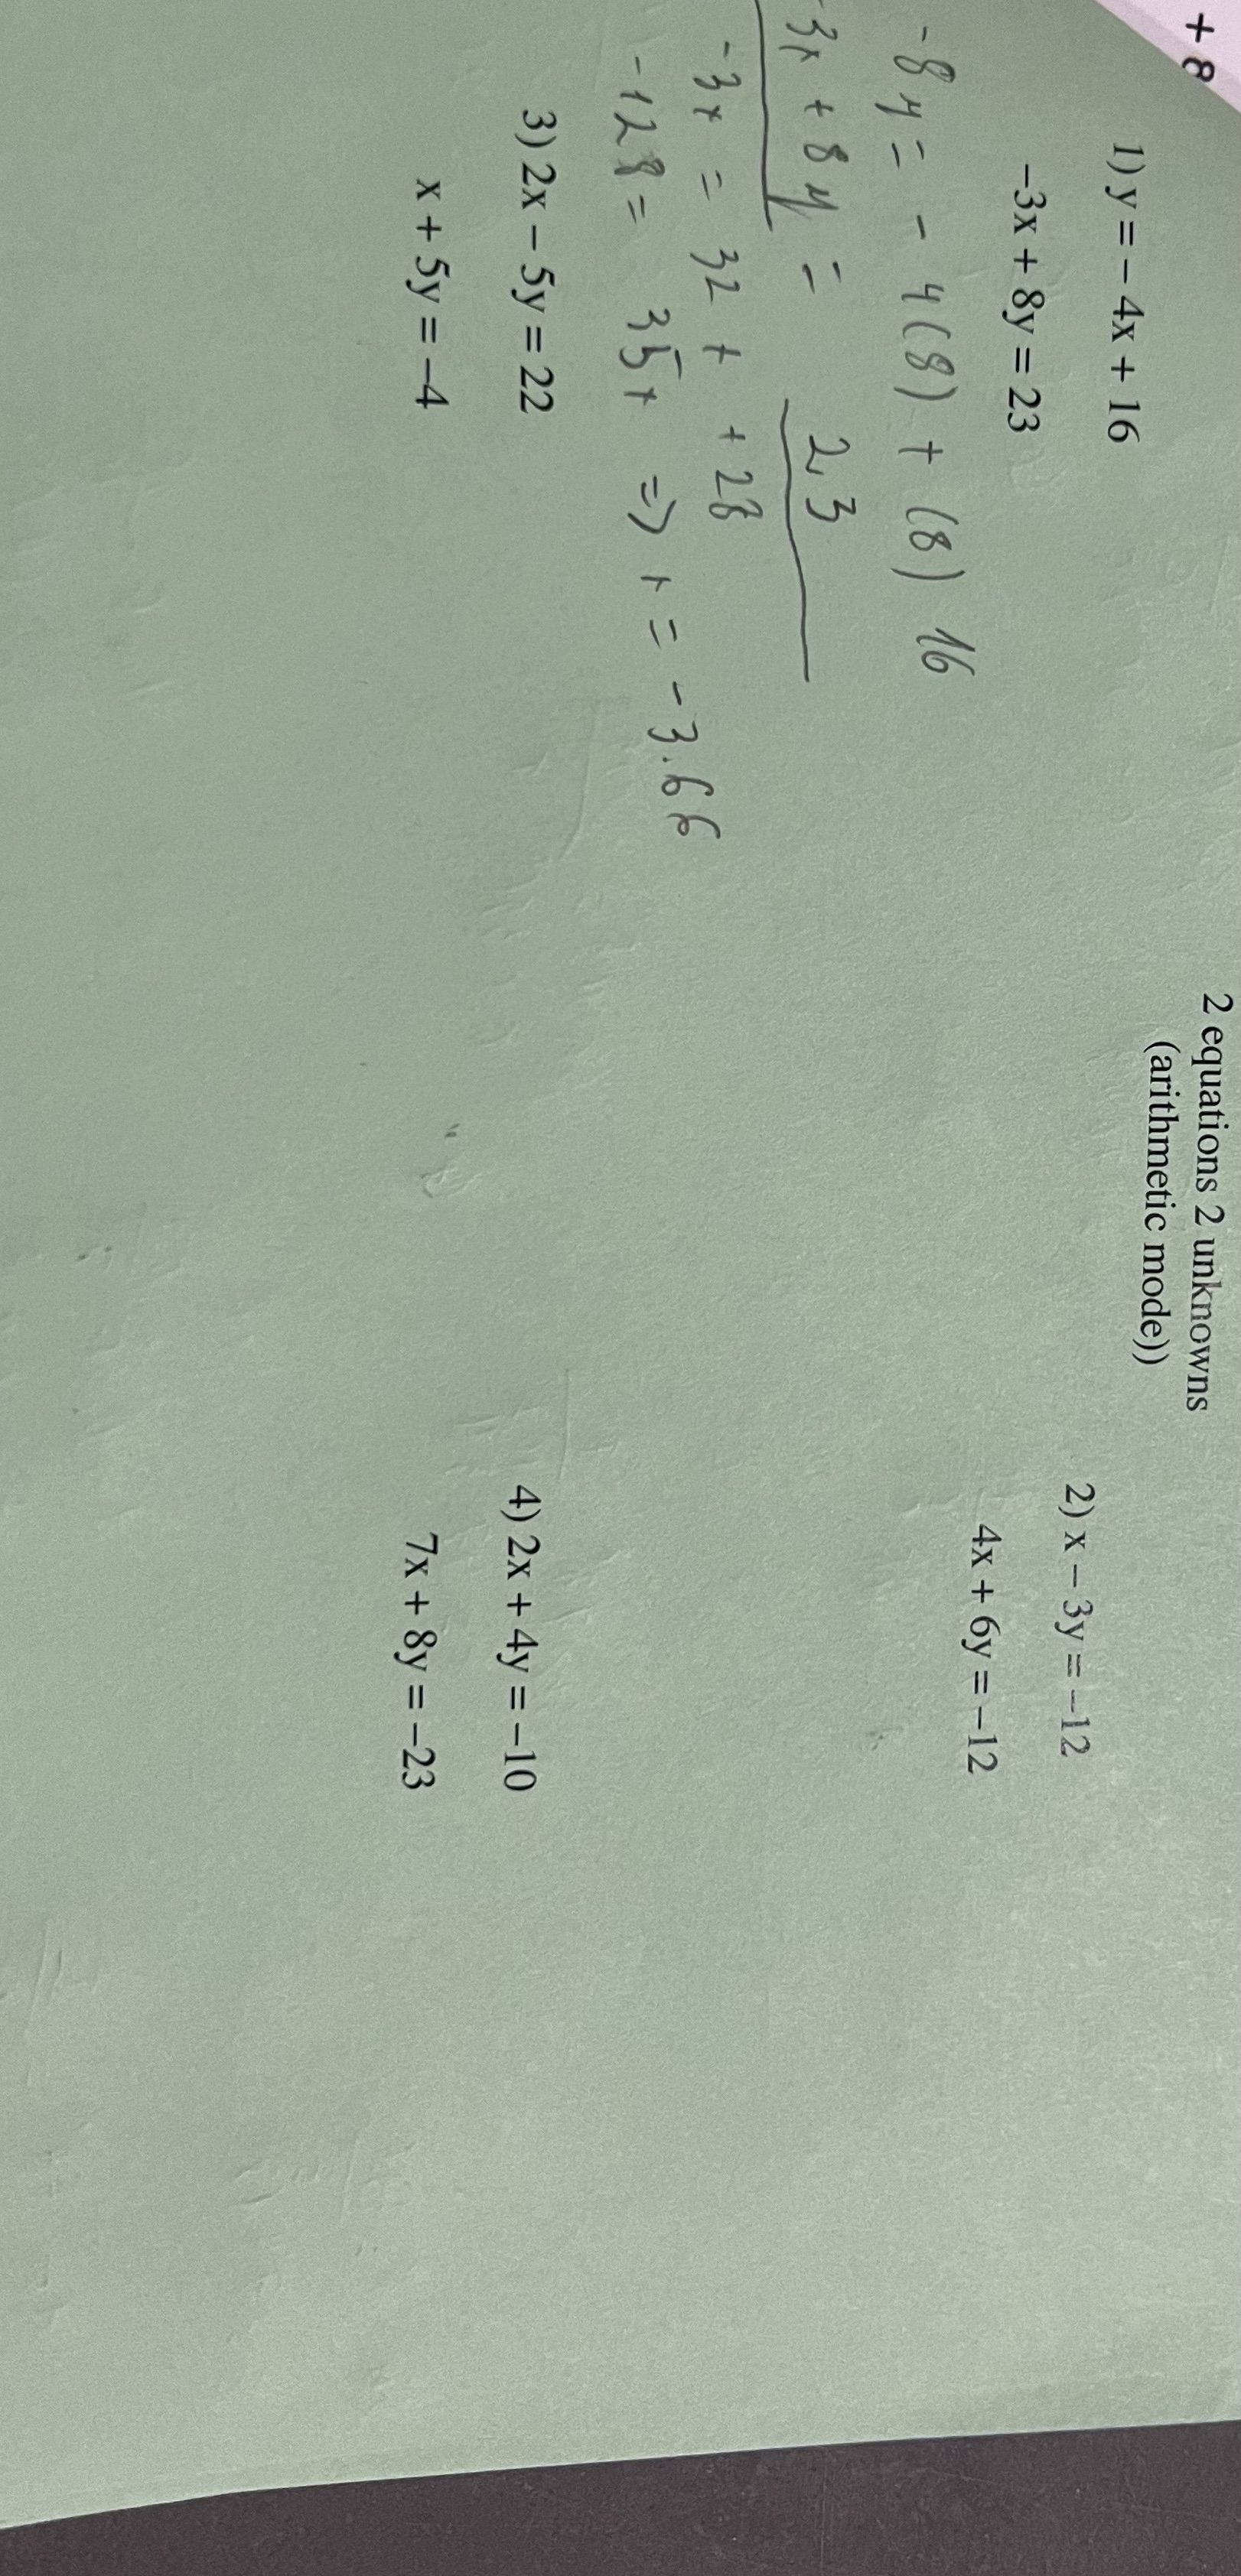 + 8
2 equations 2 unknowns
(arithmetic mode))
1) y = – 4x + 16
–3x + 8y = 23
-8y = - 4(8) + (8) 16
-3x + 8y = 23
-3x = 32x + 28
-128 = 35x => x = -3.66
2) x – 3y = –12
4x + 6y = –12
3) 2x – 5y = 22
x + 5y = –4
4) 2x + 4y = –10
7x + 8y = –23